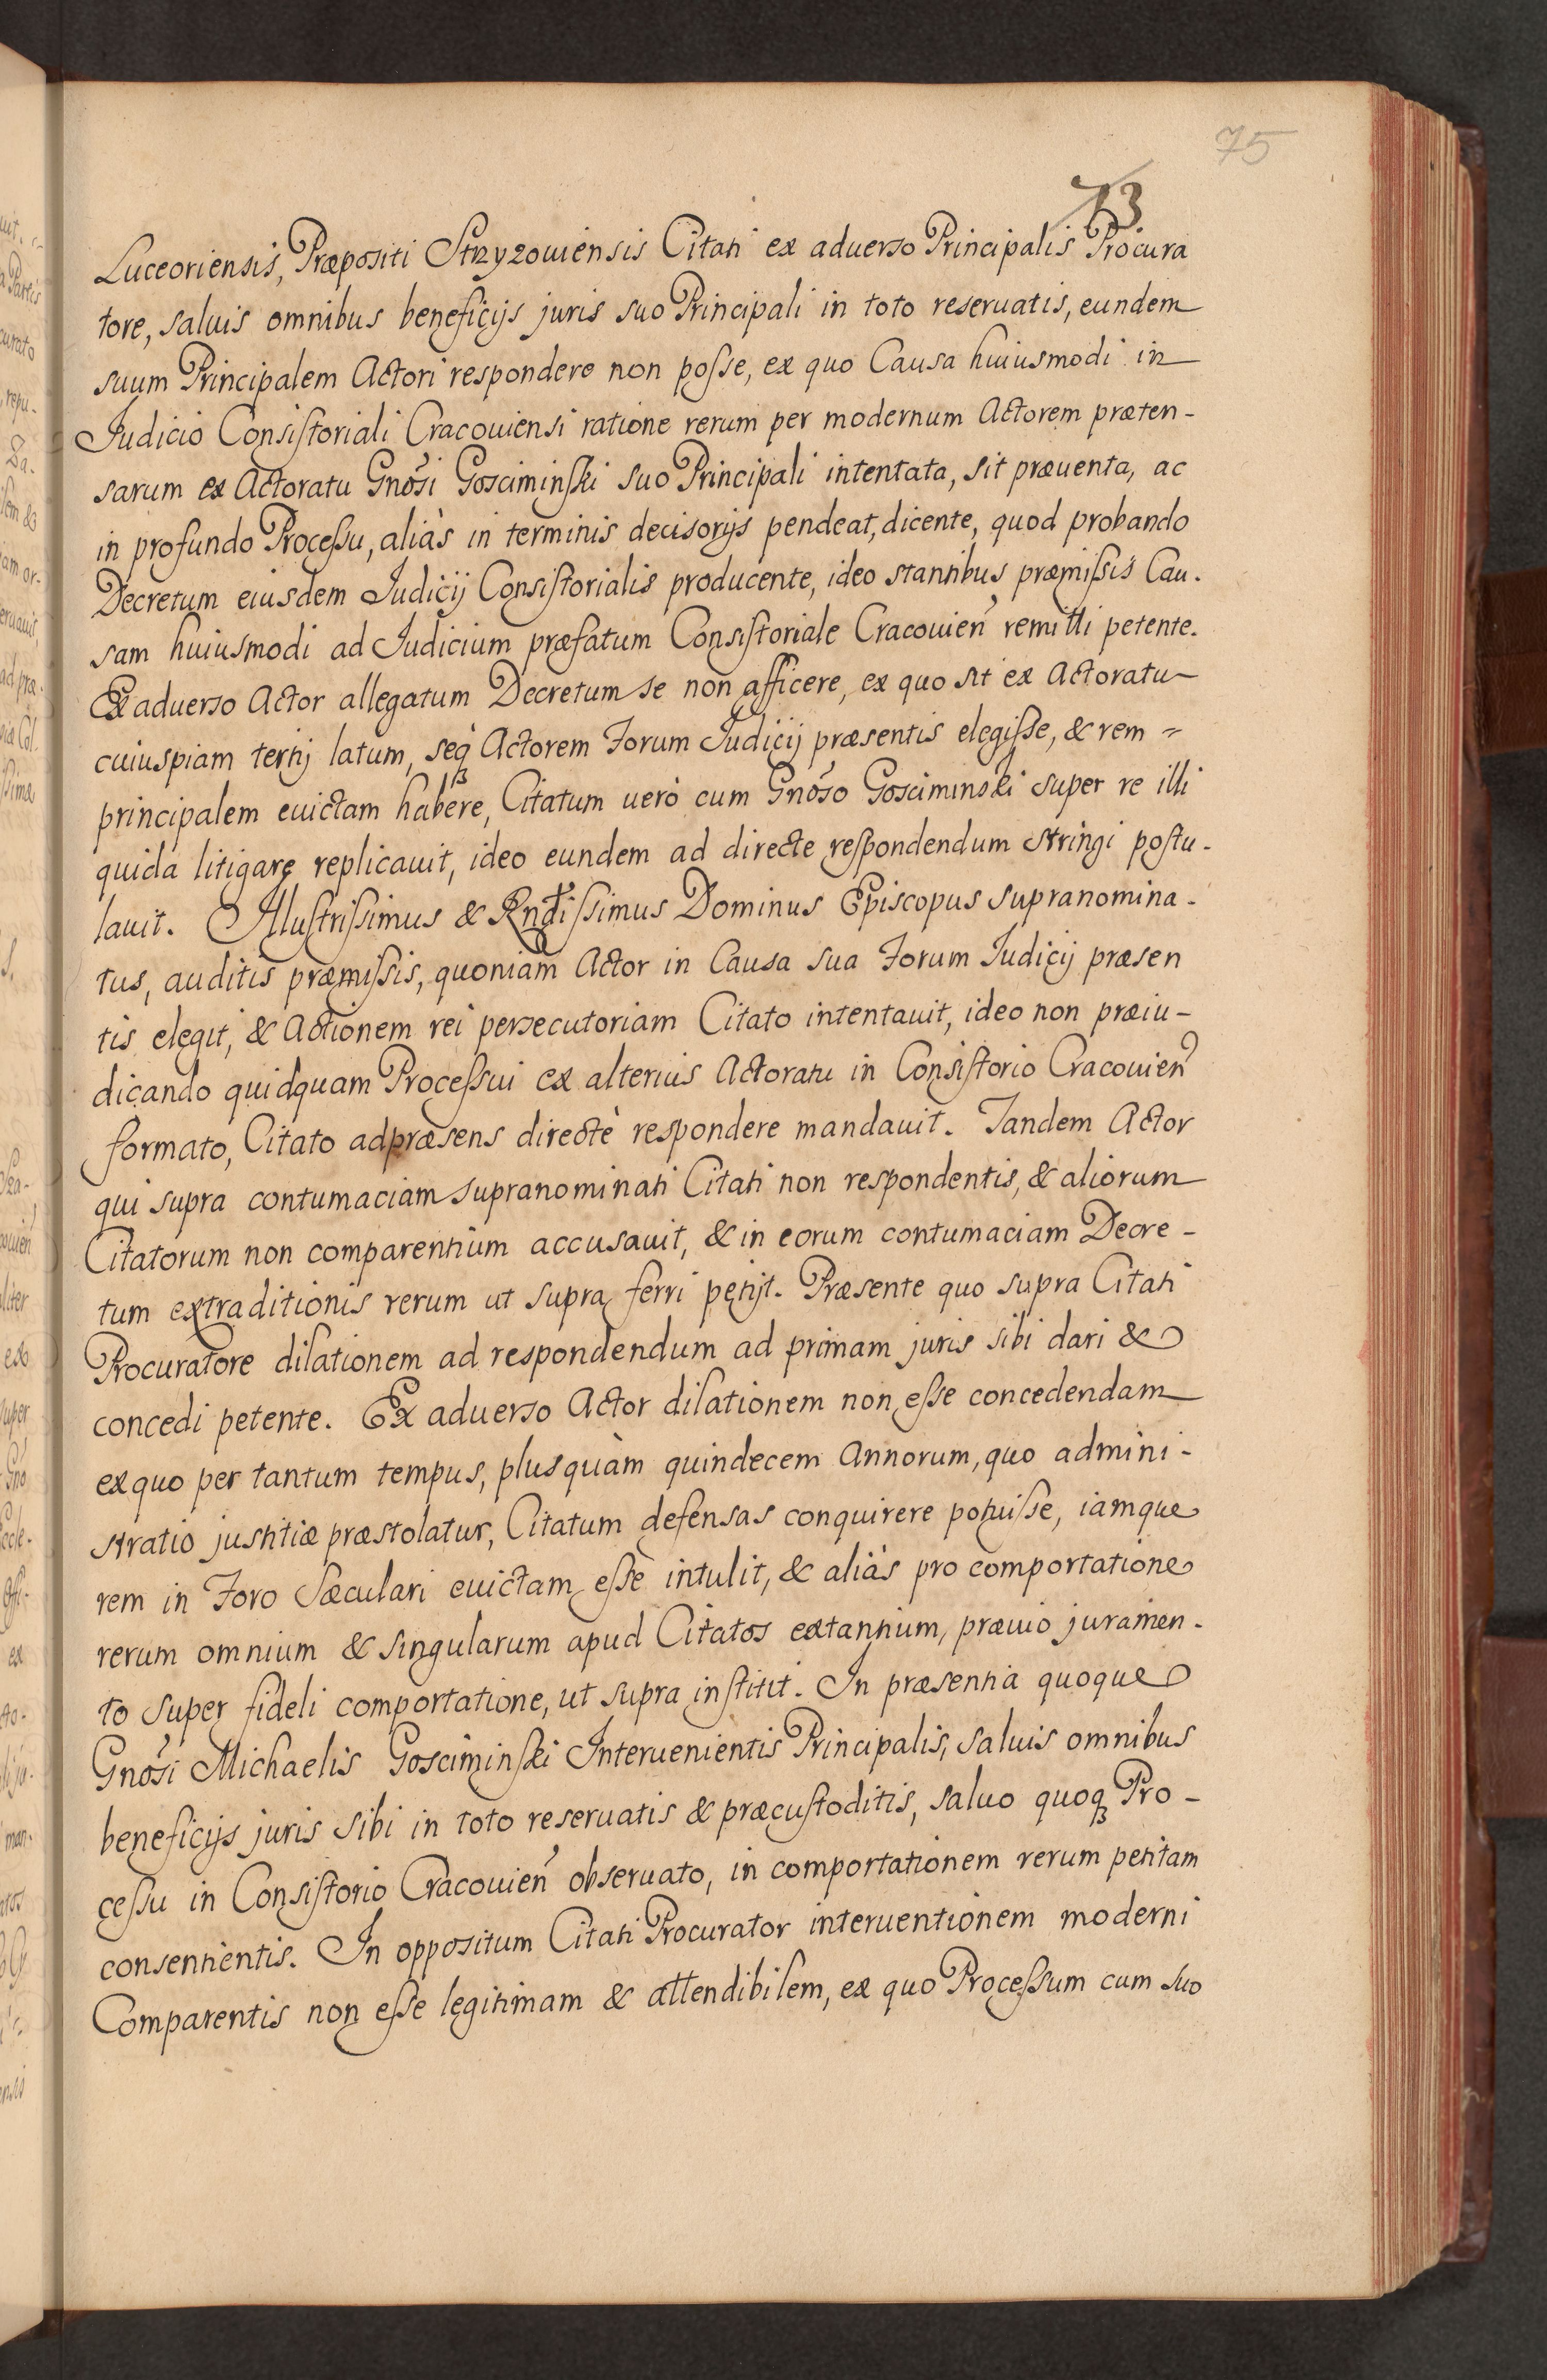 75
73
Luceoriensis, Præpositi Strzyzouiensis Citati ex aduerso Principalis Procura
tore, saluis omnibus beneficijs juris suo Principali in toto reseruatis, eundem
suum Principalem Actori respondere non posse, ex quo Causa huiusmodi in
Judicio Consistoriali Cracouiensi ratione rerum per modernum Actorem præten-
sarum ex Actoratu Gnosi Gosciminski suo Principali intentata, sit præuenta, ac
in profundo Processu, aliàs in terminis decisorijs pendeat, dicente, quod probando
Decretum eiusdem Judicij Consistorialis producente, ideo stantibus præmissis Cau-
sam huiusmodi ad Judicium præfatum Consistoriale Cracouien remitti petente.
Ex aduerso Actor allegatum Decretum se non afficere, ex quo sit ex Actoratu
cuiuspiam tertij latum, seqꝫ Actorem Forum Judicij præsentis elegisse, & rem =
principalem euictam habere, Citatum uerò cum Gnoso Gosciminski super re illi
quida litigare replicauit, ideo eundem ad directe respondendum stringi postu-
lauit. Illustrissimus & Rndissimus Dominus Episcopus supranomina-
tus, auditis præmissis, quoniam Actor in Causa sua Forum Judicij præsen
tis elegit, & Actionem rei persecutoriam Citato intentauit, ideo non præiu-
dicando quidquam Processui ex alterius Actoratu in Consistorio Cracouien
formato, Citato ad præsens directè respondere mandauit. Tandem Actor
qui supra contumaciam supranominati Citati non respondentis, & aliorum
Citatorum non comparentium accusauit, & in eorum contumaciam Decre-
tum extraditionis rerum ut supra ferri petijt. Præsente quo supra Citati
Procuratore dilationem ad respondendum ad primam juris sibi dari &
concedi petente. Ex aduerso Actor dilationem non esse concedendam
ex quo per tantum tempus, plusquàm quindecem Annorum, quo admini-
stratio justitiæ præstolatur, Citatum defensas conquirere potuisse, iamque
rem in Foro Sæculari euictam esse intulit, & aliàs pro comportatione
rerum omnium & singularum apud Citatos extantium, præuio juramen-
to super fideli comportatione, ut supra institit. In præsentia quoque
Gnosi Michaelis Gosciminski Interuenientis Principalis, saluis omnibus
beneficijs juris sibi in toto reseruatis & præcustoditis, saluo quoqꝫ Pro-
cessu in Consistorio Cracouien obseruato, in comportationem rerum petitam
consentientis. In oppositum Citati Procurator interuentionem moderni
Comparentis non esse legitimam & attendibilem, ex quo Processum cum suo